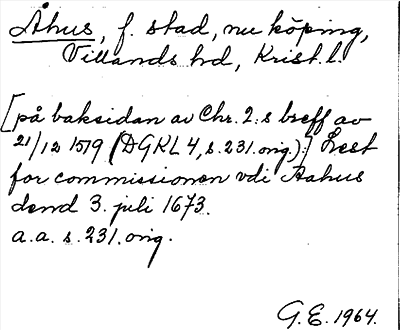 Åhus, f. stad, nu köping,
Villands hd, Krist. l.
[på baksidan av Chr. 2:s breff av
21/12 1519 (DGKL 4, s. 231. orig.):] Lest
for commissionen vdi Aahus
dend 3. juli 1673.
a.a. s. 231. orig.
G.E. 1964.